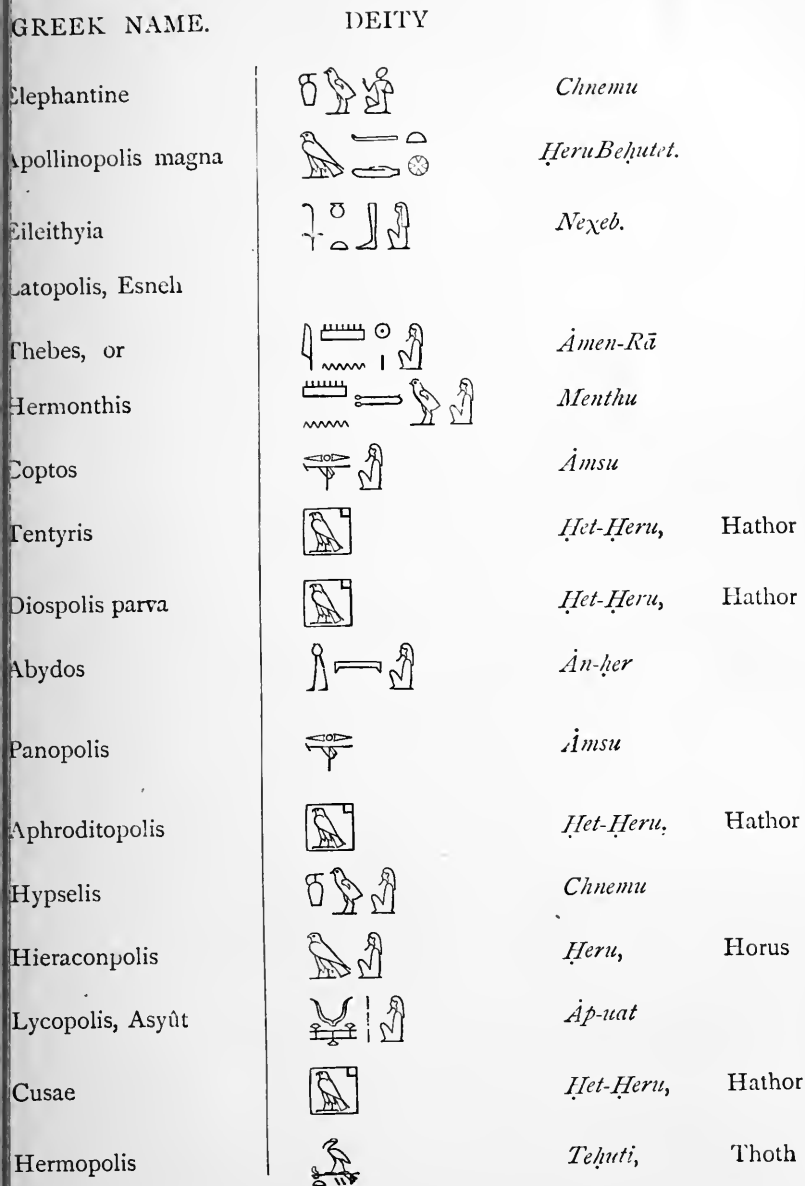 GREEK NAME. DEITY
Elephantine Chnemu
Apollinopolis magna ḤeruBeḥutet.
Eileithyia Neχeb.
Latopolis, Esneh
Thebes, or Ȧmen-Rā
Hermonthis Menthu
Coptos Ȧmsu
Tentyris Ḥet-Ḥeru, Hathor
Diospolis parva Ḥet-Ḥeru, Hathor
Abydos Ȧn-ḥer
Panopolis Ȧmsu
Aphroditopolis Ḥet-Ḥeru. Hathor
Hypselis Chnemu
Hieraconpolis Ḥeru, Horus
Lycopolis, Asyût Ȧp-uat
Cusae Ḥet-Ḥeru, Hathor
Hermopolis Teḥuti, Thoth